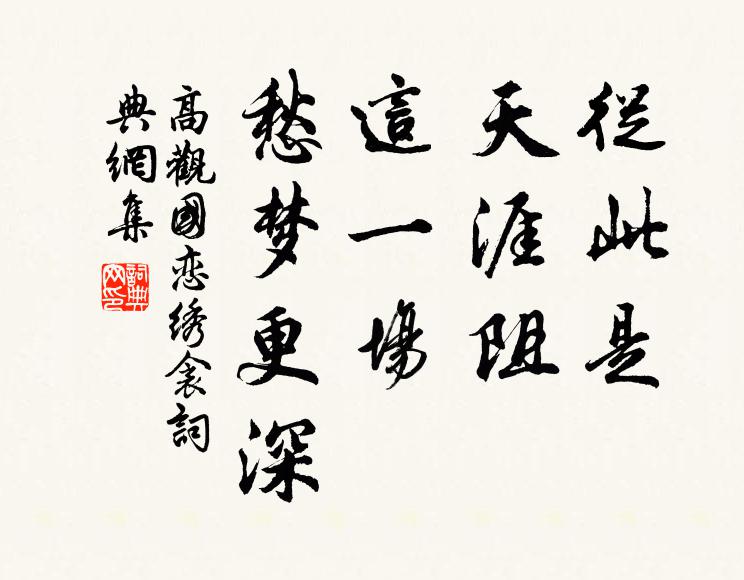 從此是
天涯阻
這一場
愁梦更深
高觀國恋绣衾詞
典網集
詞典
网印